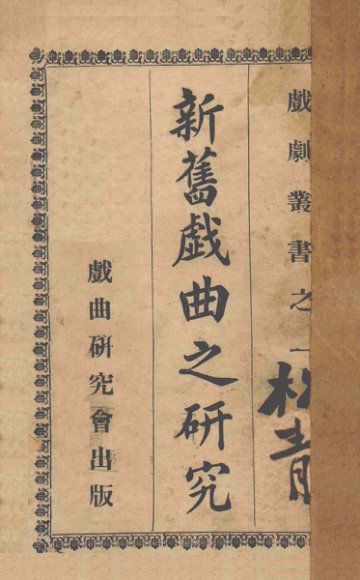 戲劇叢書之一
新舊戲曲之硏究
戲曲硏究會出版